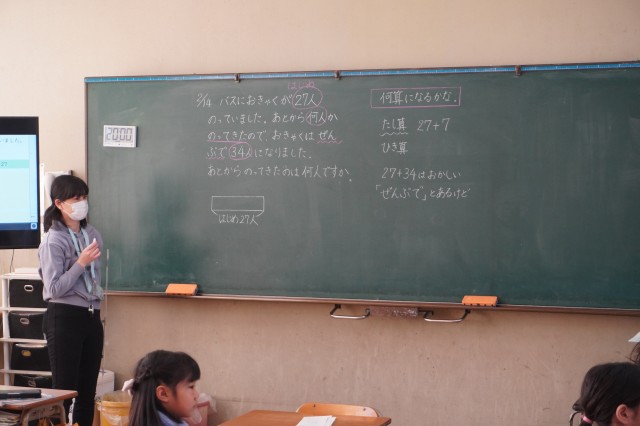 20:00
はじめ
2/14 バスにおきゃくが27人
のっていました。あとから何人か
のってきたので おきゃくは ぜん
ぶで 34人になりました。
あとから のってきたのは 何人ですか。
はじめ27人
何算になるかな。
たし算 27+7
ひき算
27+34はおかしい
「ぜんぶで」とあるけど